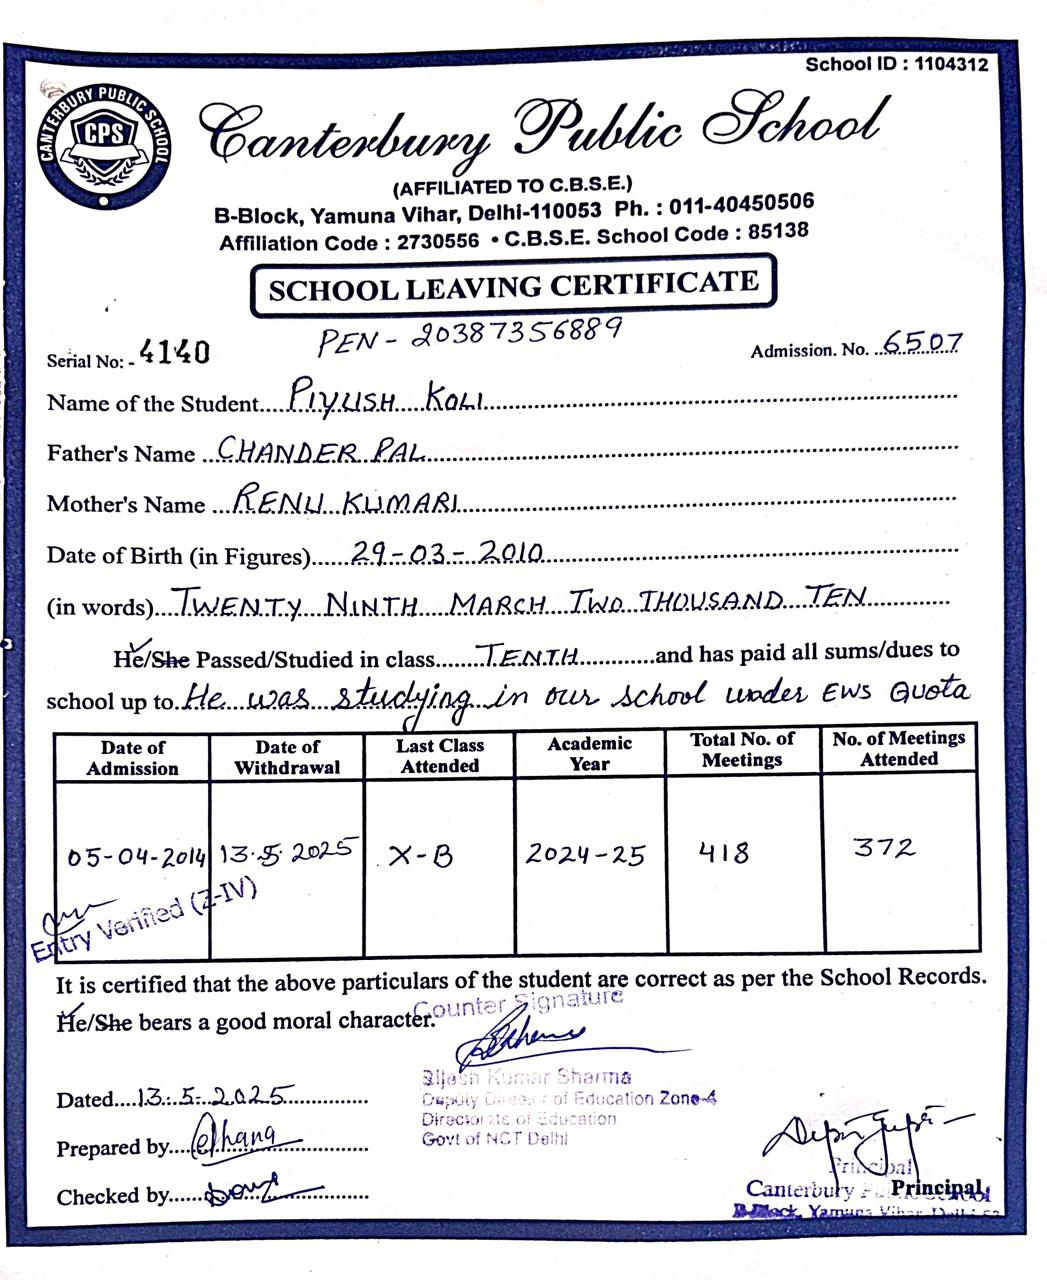 School ID : 1104312
CANTERBURY PUBLIC SCHOOL
CPS
Canterbury Public School
(AFFILIATED TO C.B.S.E.)
B-Block, Yamuna Vihar, Delhi-110053 Ph. : 011-40450506
Affiliation Code : 2730556 • C.B.S.E. School Code : 85138
SCHOOL LEAVING CERTIFICATE
PEN - 20387356889
Serial No: - 4140
Admission. No. 6507
Name of the Student PIYUSH KOLI
Father's Name CHANDER PAL
Mother's Name RENU KUMARI
Date of Birth (in Figures) 29-03-2010
(in words) TWENTY NINTH MARCH TWO THOUSAND TEN
He/She Passed/Studied in class TENTH and has paid all sums/dues to
school up to He was studying in our school under EWS Quota
Date of Admission Date of Withdrawal Last Class Attended Academic Year Total No. of Meetings No. of Meetings Attended
05-04-2014 13.5.2025 X-B 2024-25 418 372
Entry Verified (Z-IV)
It is certified that the above particulars of the student are correct as per the School Records.
He/She bears a good moral character.
Counter Signature
Kumar Sharma
Deputy Director of Education Zone-4
Directorate of Education
Govt of NCT Delhi
Dated 13.5.2025
Prepared by
Checked by
Principal
Canterbury Public School
Principal
B-Block, Yamuna Vihar, Delhi-53